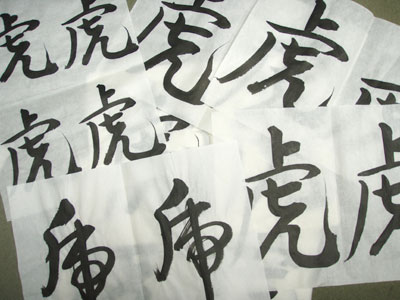 虎虎
虎
虎
虎虎
虎虎
乕乕